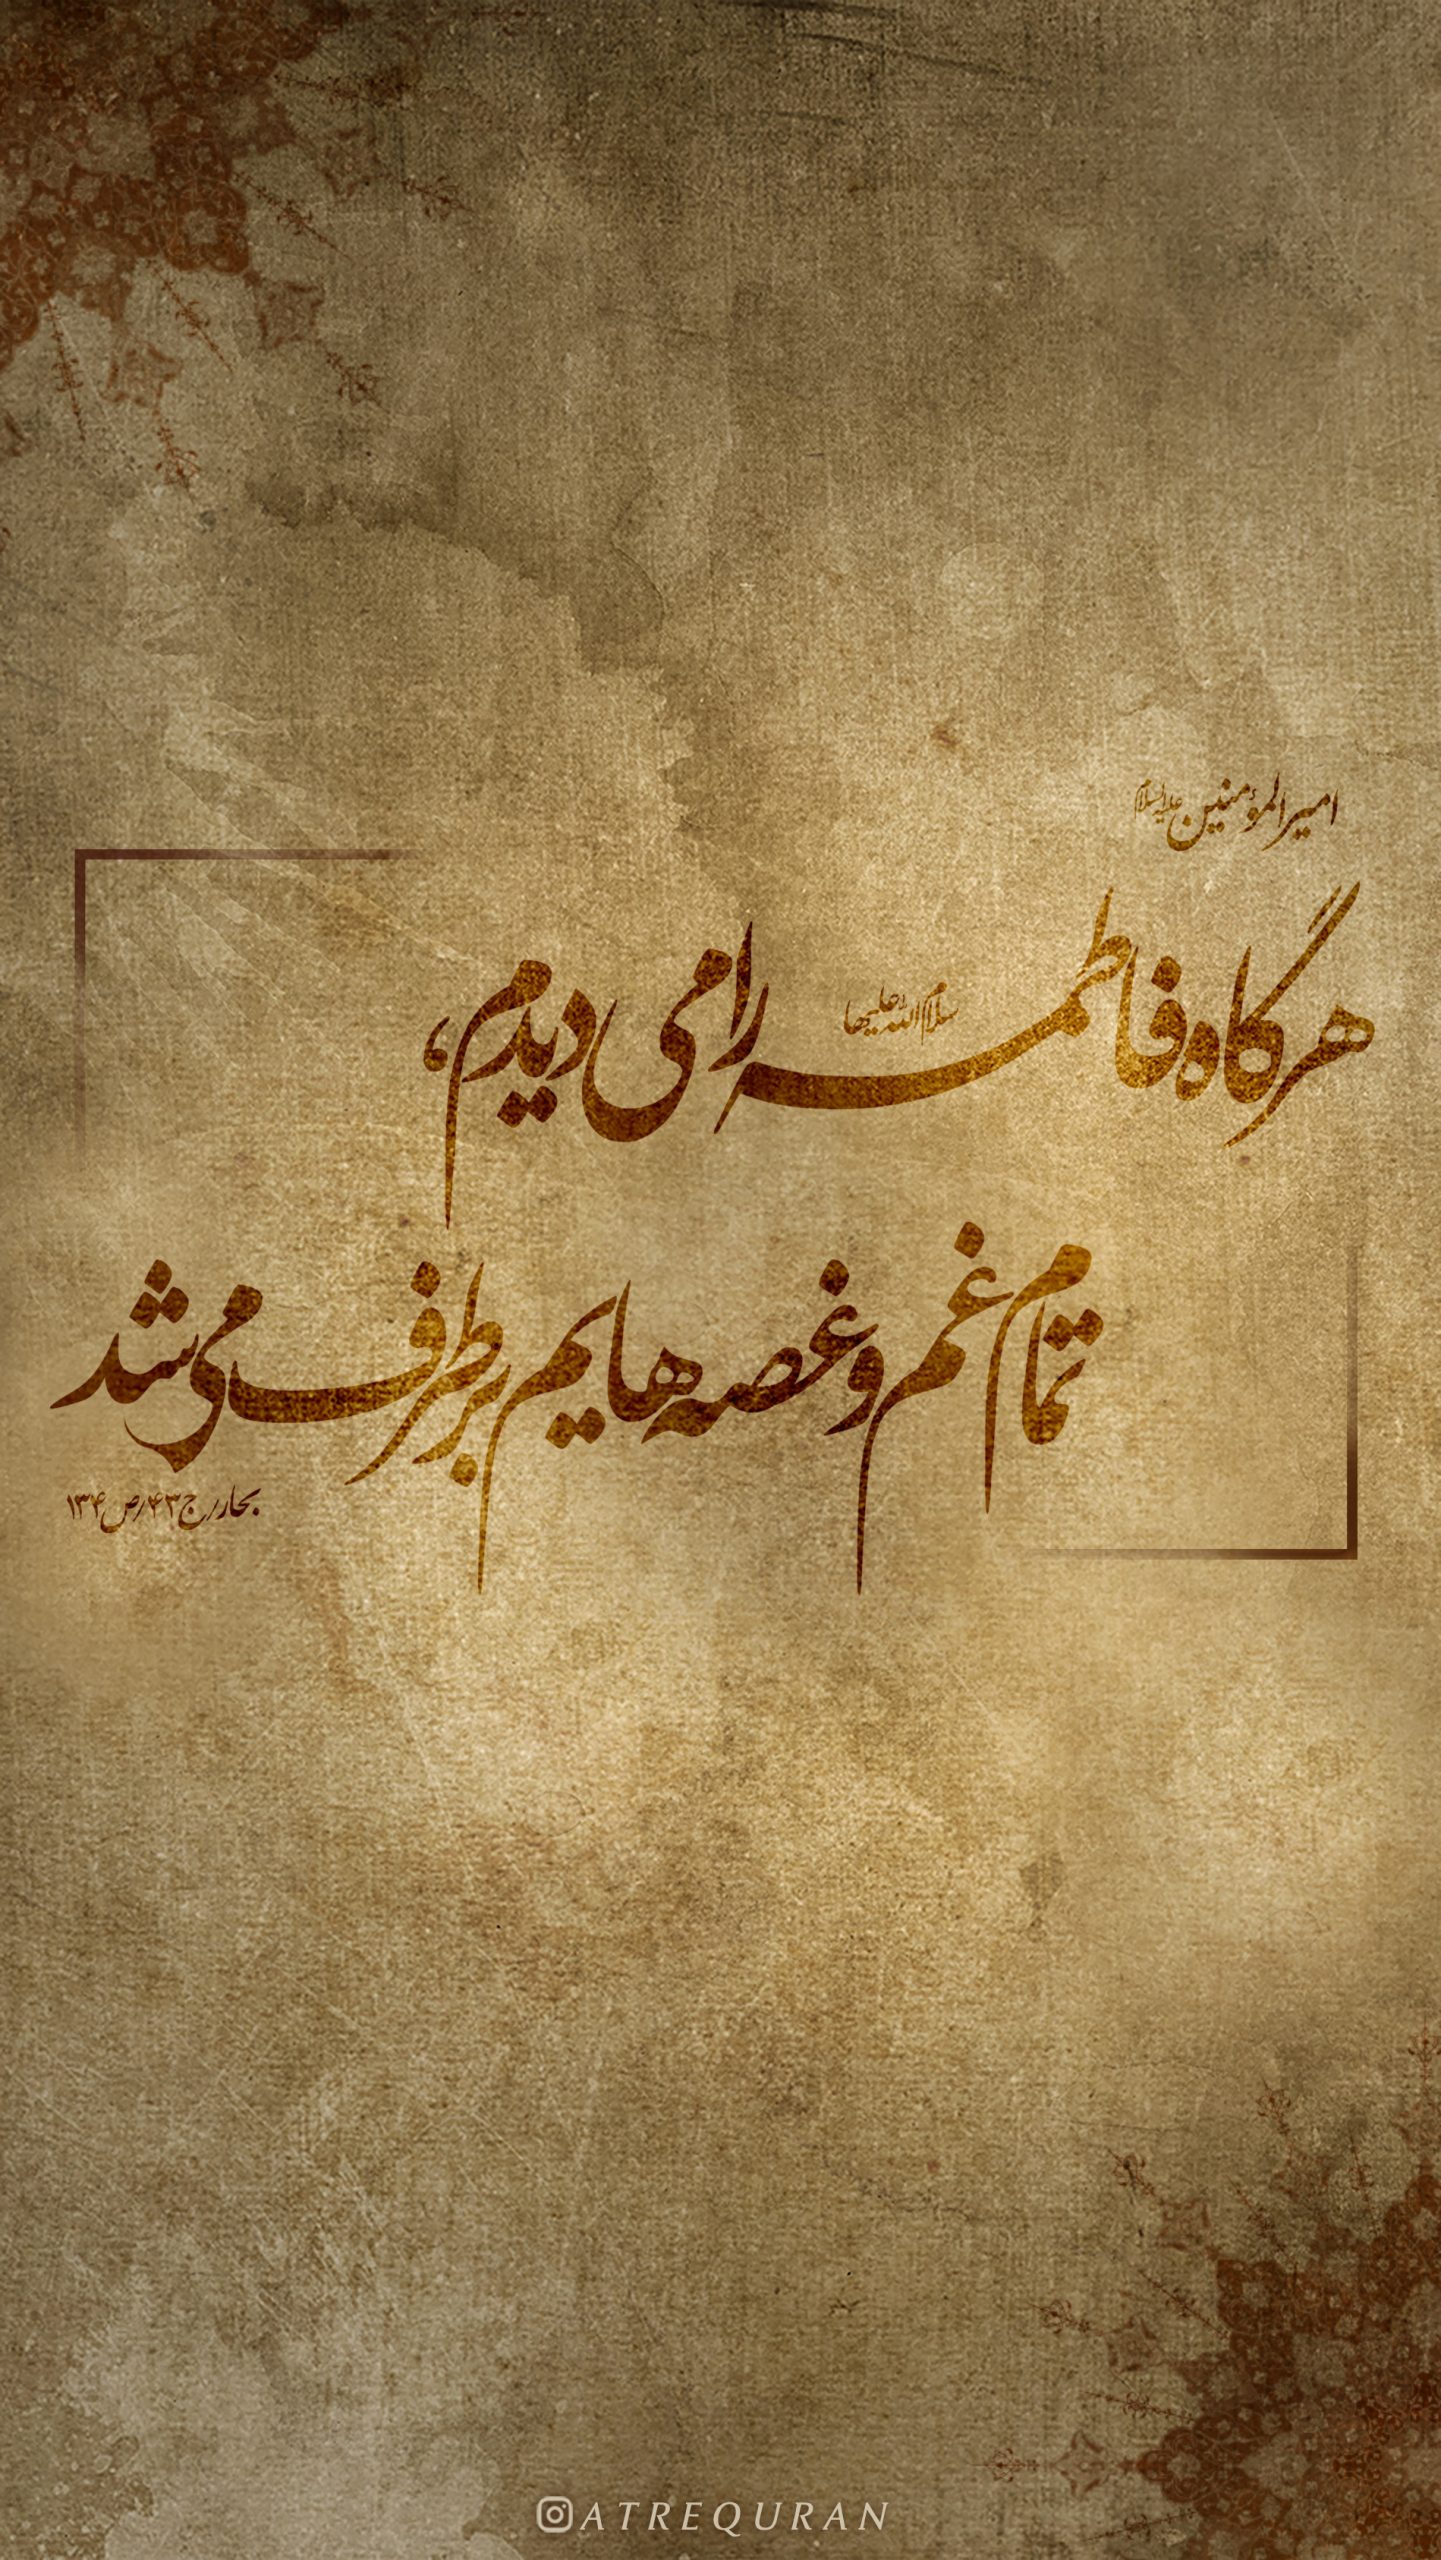 امیرالمؤمنین علیه‌السلام
هرگاه فاطمه سلام الله علیها را می دیدم،
تمام غم و غصه هایم برطرف می شد
بحار/ج۴۳/ص۱۳۴
ATREQURAN